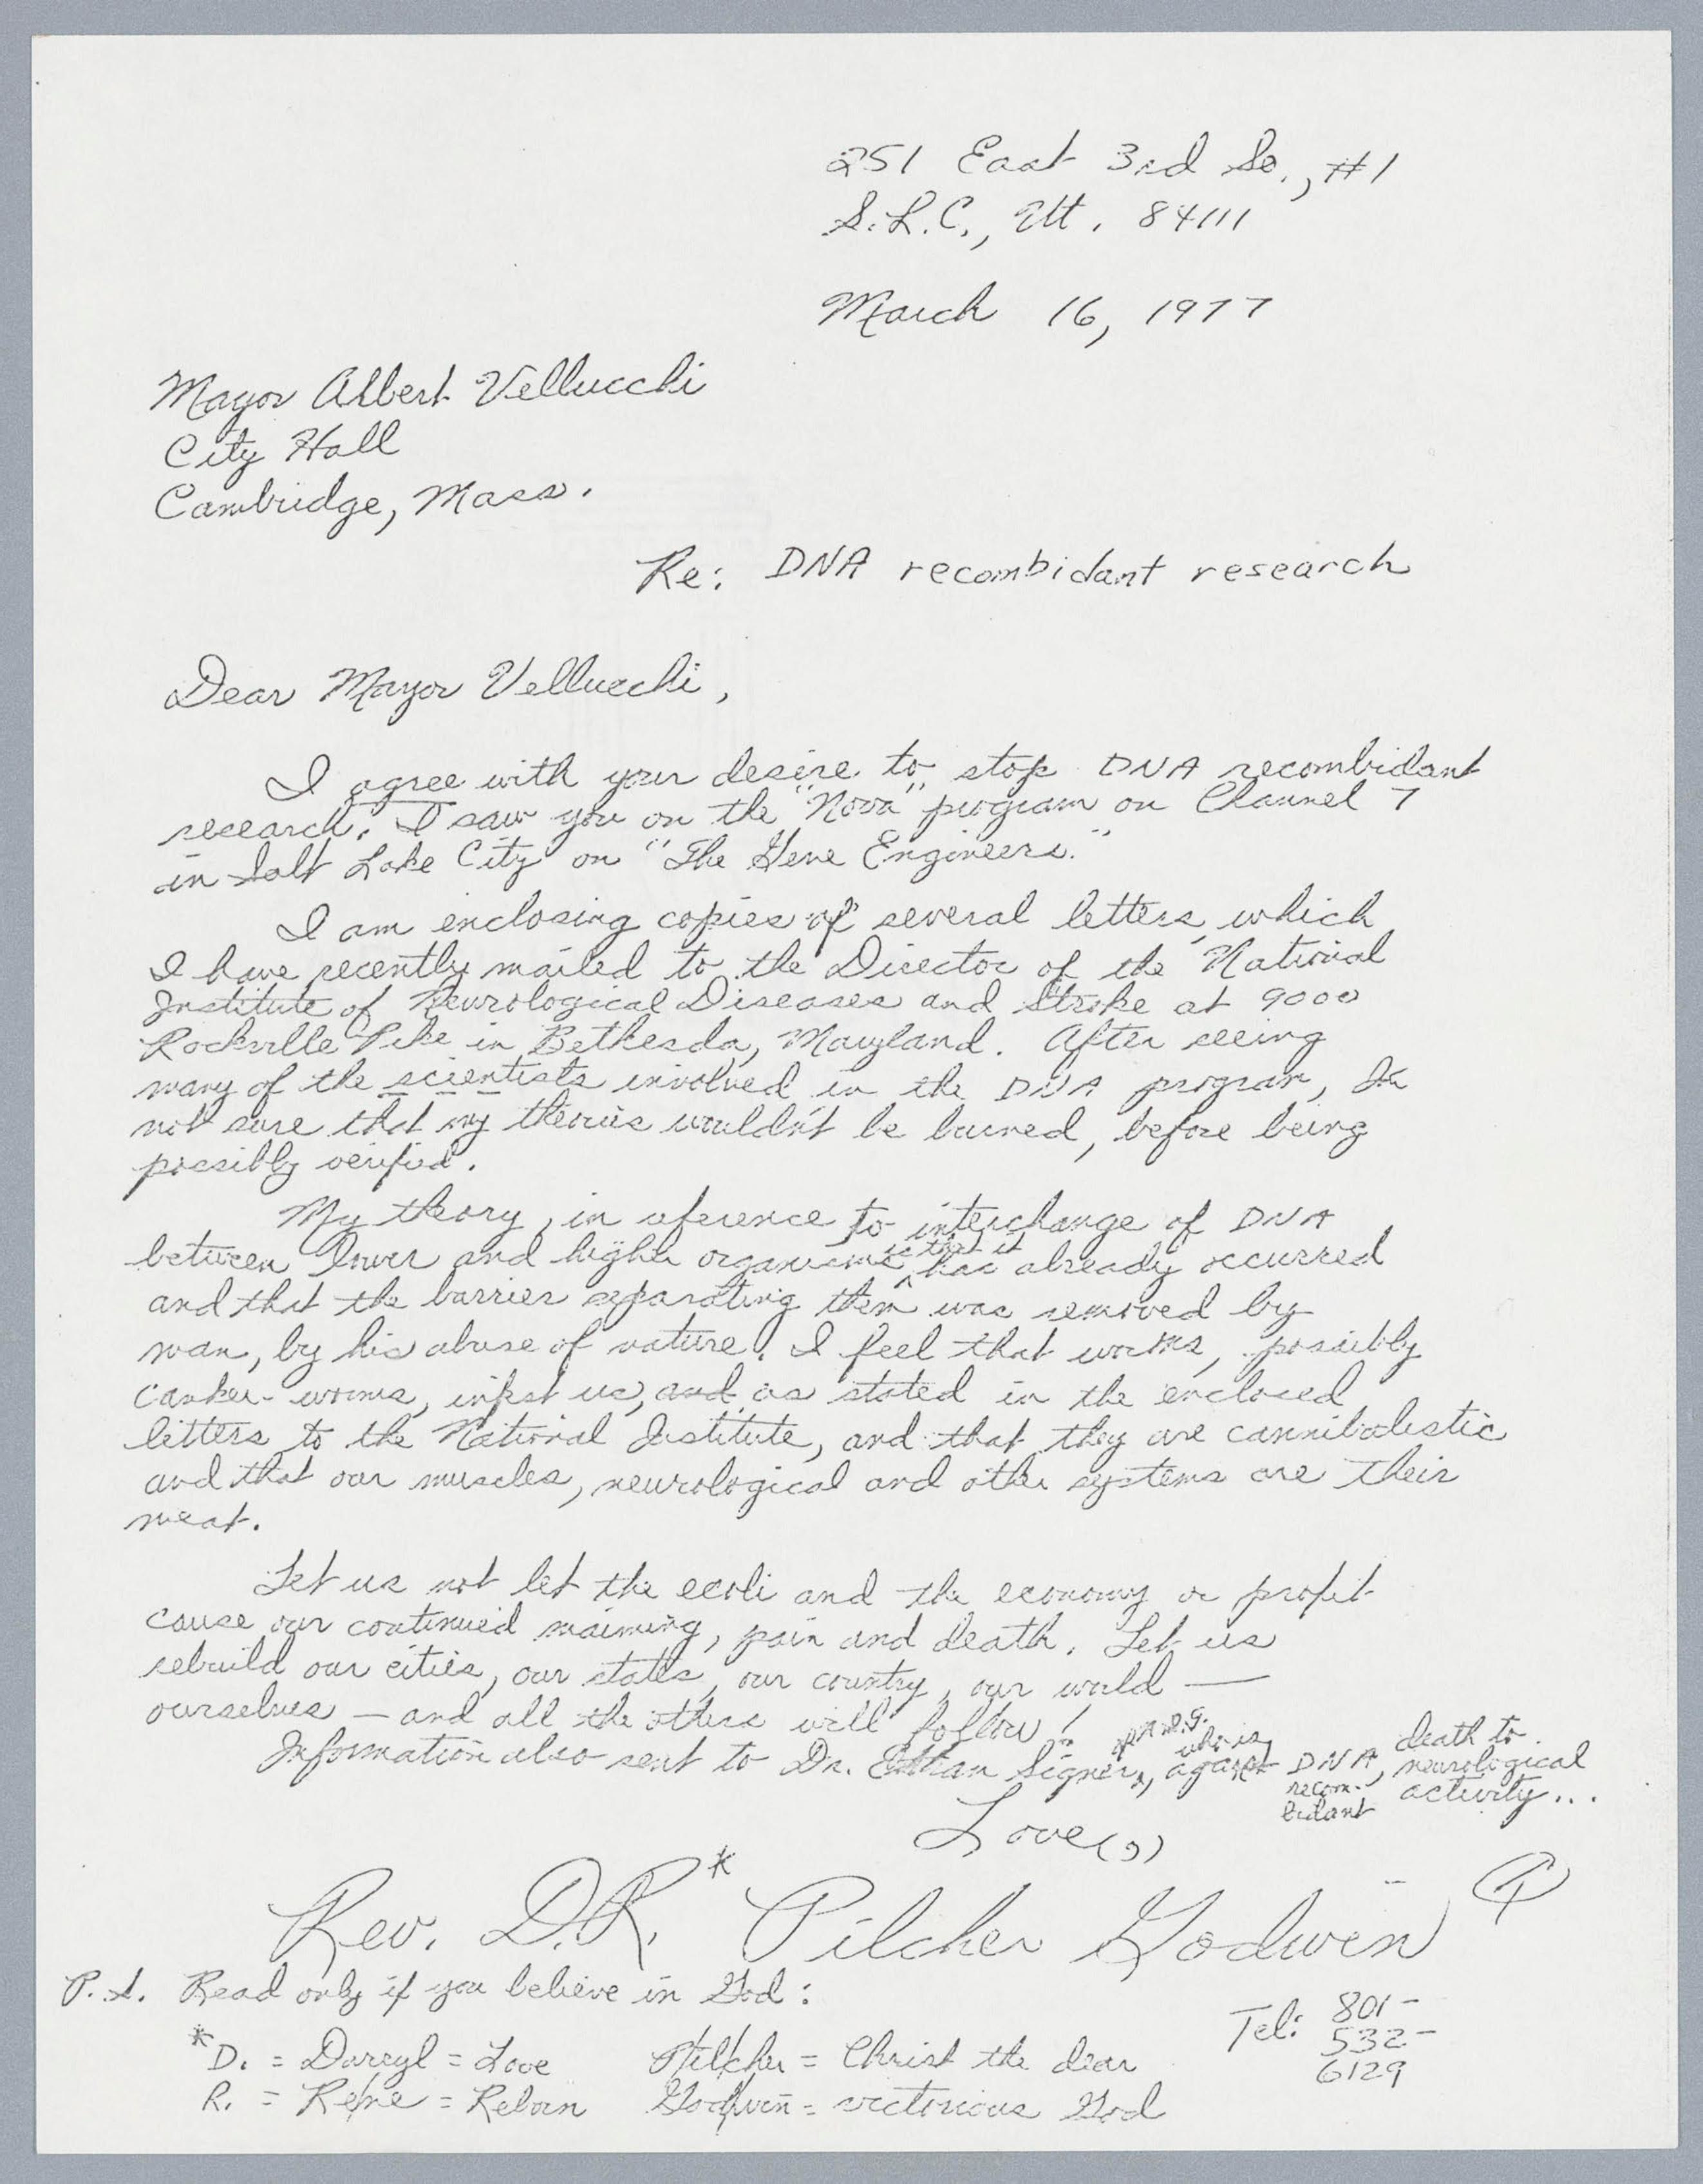 251 East 3rd So., #1
S.L.C., Ut. 84111
March 16, 1977
Mayor Albert Vellucchi
City Hall
Cambridge, Mass.
Re: DNA recombidant research
Dear Mayor Vellucchi,
I agree with your desire to stop DNA recombidant
research. I saw you on the "Nova" program on Channel 7
in Salt Lake City on "The Gene Engineers."
I am enclosing copies of several letters, which
I have recently mailed to the Director of the National
Institute of Neurological Diseases and Stroke at 9000
Rockville Pike in Bethesda, Maryland. After seeing
many of the scientists involved in the DNA program, I'm
not sure that my theories wouldn't be burned, before being
possibly verified.
My theory, in reference to interchange of DNA
between lower and higher organisms is that it has already occurred
and that the barrier separating them was removed by
man, by his abuse of nature. I feel that worms, possibly
canker-worms, infest us, and as stated in the enclosed
letters to the National Institute, and that they are cannibalistic
and that our muscles, neurological and other systems are their
meat.
Let us not let the ecoli and the economy or profit
cause our continued maiming, pain and death. Let us
rebuild our cities, our states, our country, our world —
ourselves — and all the others will follow!
Information also sent to Dr. Ethan Signer, who is against DNA recombidant, death to neurological activity...
Love(s)
Rev. D.R.* Pilcher Godwin
P.S. Read only if you believe in God:
*D. = Darryl = Love Pilcher = Christ the dear
R. = Rene = Reborn Godwin = victorious God
Tel: 801-
532-
6129